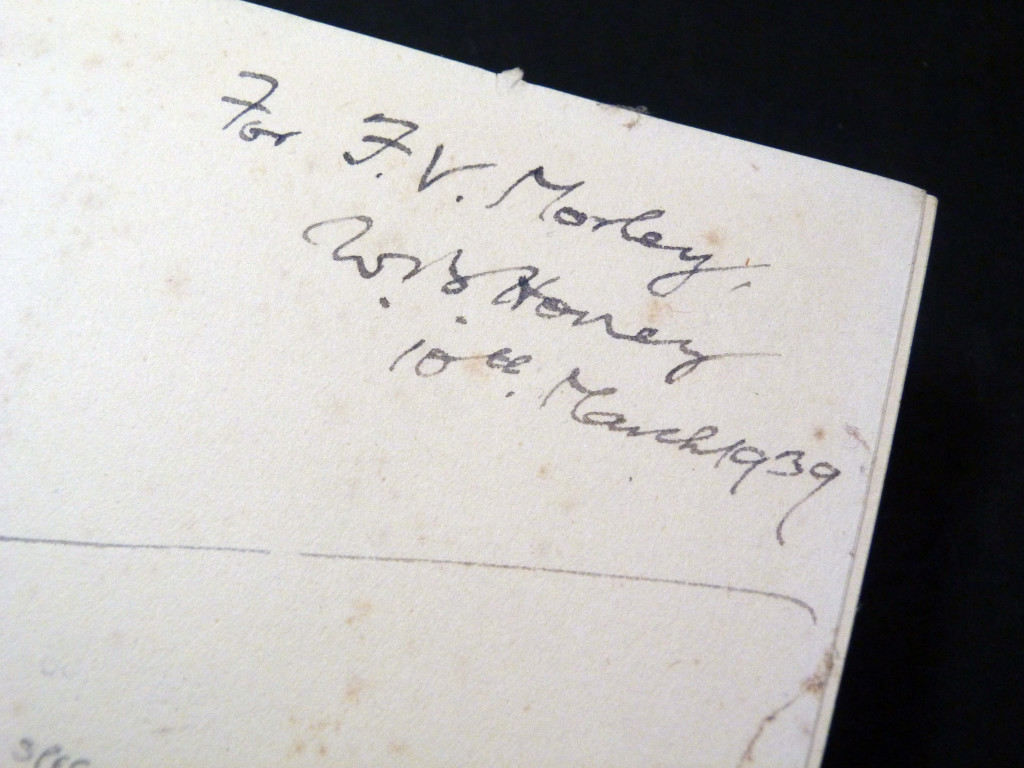 For F.V. Morley,
W.B. Honey
10th. March 1939